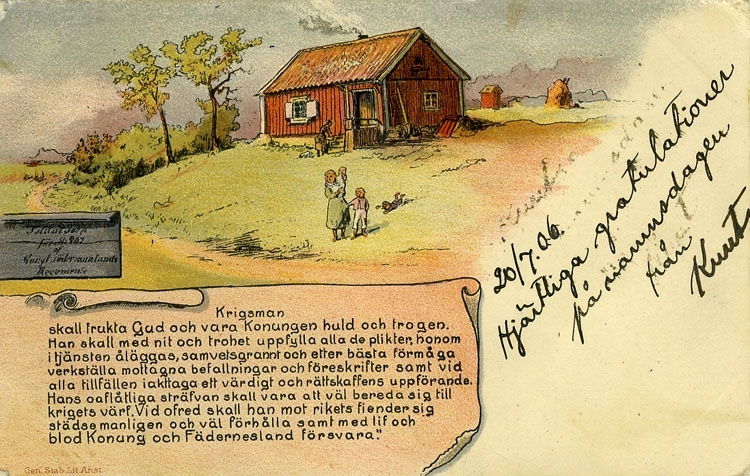 Soldat Torp
för № 867
af
Kongl. Södermanlands
Regemente
Krigsman
skall frukta Gud och vara Konungen huld och trogen.
Han skall med nit och trohet uppfylla alla de plikter, honom
i tjänsten åläggas, samvetsgrannt och efter bästa förmåga
verkställa mottagna befallningar och föreskrifter samt vid
alla tillfällen iakttaga ett värdigt och rättskaffens uppförande.
Hans oaflåtliga sträfvan skall vara att väl bereda sig till
krigets värf. Vid ofred skall han mot rikets fiender sig
städse manligen och väl förhålla samt med lif och
blod Konung och Fädernesland försvara."
Gen. Stab. Lit. Anst.
20/7.06.
Hjärtliga gratulationer
på namnsdagen
från
Knut